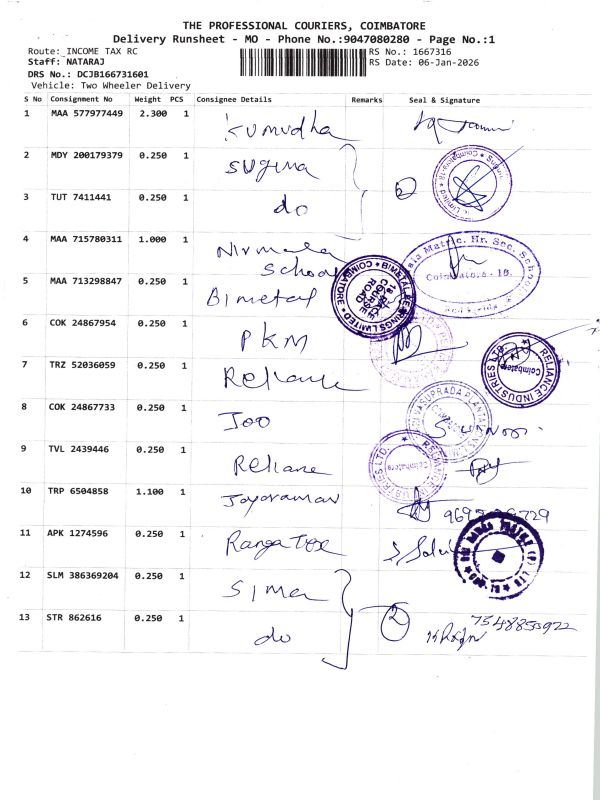 THE PROFESSIONAL COURIERS, COIMBATORE
Delivery Runsheet - MO - Phone No.:9047080280 - Page No.:1
Route: INCOME TAX RC
RS No.: 1667316
Staff: NATARAJ
RS Date: 06-Jan-2026
DRS No.: DCJB166731601
Vehicle: Two Wheeler Delivery
S No Consignment No Weight PCS Consignee Details Remarks Seal & Signature
1 MAA 577977449 2.300 1 Kumudha
2 MDY 200179379 0.250 1 Suguna
3 TUT 7411441 0.250 1 do 2
4 MAA 715780311 1.000 1 Nirmala School
Matric. Hr. Sec. School
Coimbatore - 18.
5 MAA 713298847 0.250 1 Bimetal
BIMETAL BEARINGS LIMITED COIMBATORE
6 COK 24867954 0.250 1 PKM
7 TRZ 52036059 0.250 1 Reliance
RELIANCE INDUSTRIES LTD. Coimbatore
8 COK 24867733 0.250 1 Joo
9 TVL 2439446 0.250 1 Reliance
RELIANCE INDUSTRIES LTD. Coimbatore
10 TRP 6504858 1.100 1 Jayaraman
11 APK 1274596 0.250 1 Ranga
12 SLM 386369204 0.250 1 Sima
13 STR 862616 0.250 1 do 2